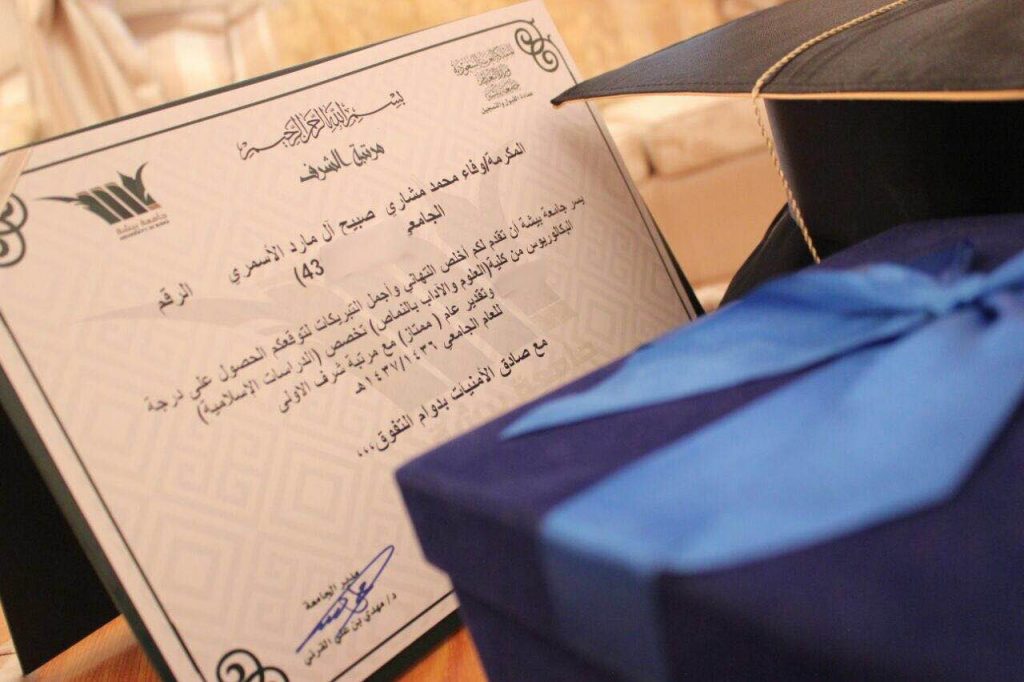 المملكة العربية السعودية
وزارة التعليم
جامعة بيشة
عمادة القبول والتسجيل
بسم الله الرحمن الرحيم
مرتبة الشرف
جامعة بيشة
UNIVERSITY OF BISHA
المكرمة/وفاء محمد مشاري صبيح آل مارد الأسمري الرقم
الجامعي (43
يسر جامعة بيشة ان تقدم لكم أخلص التهاني وأجمل التبريكات لتوقعكم الحصول على درجة
البكالوريوس من كلية(العلوم والآداب بالنماص) تخصص (الدراسات الإسلامية)
وتقدير عام ( ممتاز) مع مرتبة شرف الأولى
للعام الجامعي ١٤٣٧/١٤٣٦هـ
مع صادق الأمنيات بدوام التفوق،،،
مدير الجامعة
د/ مهدي بن علي القرني